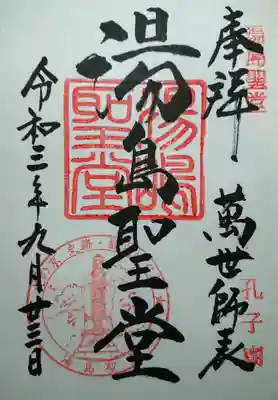 奉拝
萬世師表
湯島聖堂
令和三年九月廿三日
湯島聖堂
孔子廟